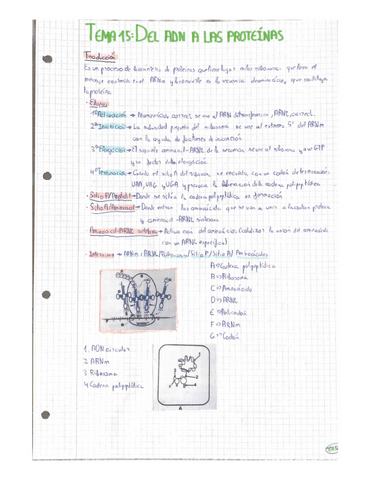 TEMA 15: DEL ADN A LAS PROTEÍNAS
Traducción
Es un proceso de biosíntesis de proteínas que tiene lugar en los ribosomas que leen el
mensaje contenido en el ARNm y lo convierte en la secuencia de aminoácidos, que constituye
la proteína.
Etapas
1ª Activación → Aminoácidos
2ª Iniciación → La subunidad pequeña del ribosoma se une al extremo 5' del ARNm
con la ayuda de factores de iniciación
3ª Elongación → El aminoacil-ARNt de la secuencia se une al ribosoma y usa GTP
y factores de elongación
4ª Terminación → Cuando el sitio A del ribosoma se encuentra con un codón de terminación
UAA, UAG y UGA y provoca la liberación de la cadena polipeptídica
Sitio P/Peptidil → Donde se sitúa la cadena polipeptídica en formación
Sitio A/Aminoacil → Donde entran los aminoácidos que se van a unir a la cadena proteica
y aminoacil-ARNt sintetasa
Aminoacil ARNt sintetasa → Activación del aminoácido (cataliza la unión del aminoácido
con un ARNt específico)
→ ARNm / ARNt / Ribosoma / Sitio P / Sitio A / Aminoácidos
A → Cadena polipeptídica
B → Ribosoma
C → Aminoácido
D → ARNt
E → Anticodón
F → ARNm
G → Codón
1. ADN circular
2. ARNm
3. Ribosoma
4. Cadena polipeptídica
A